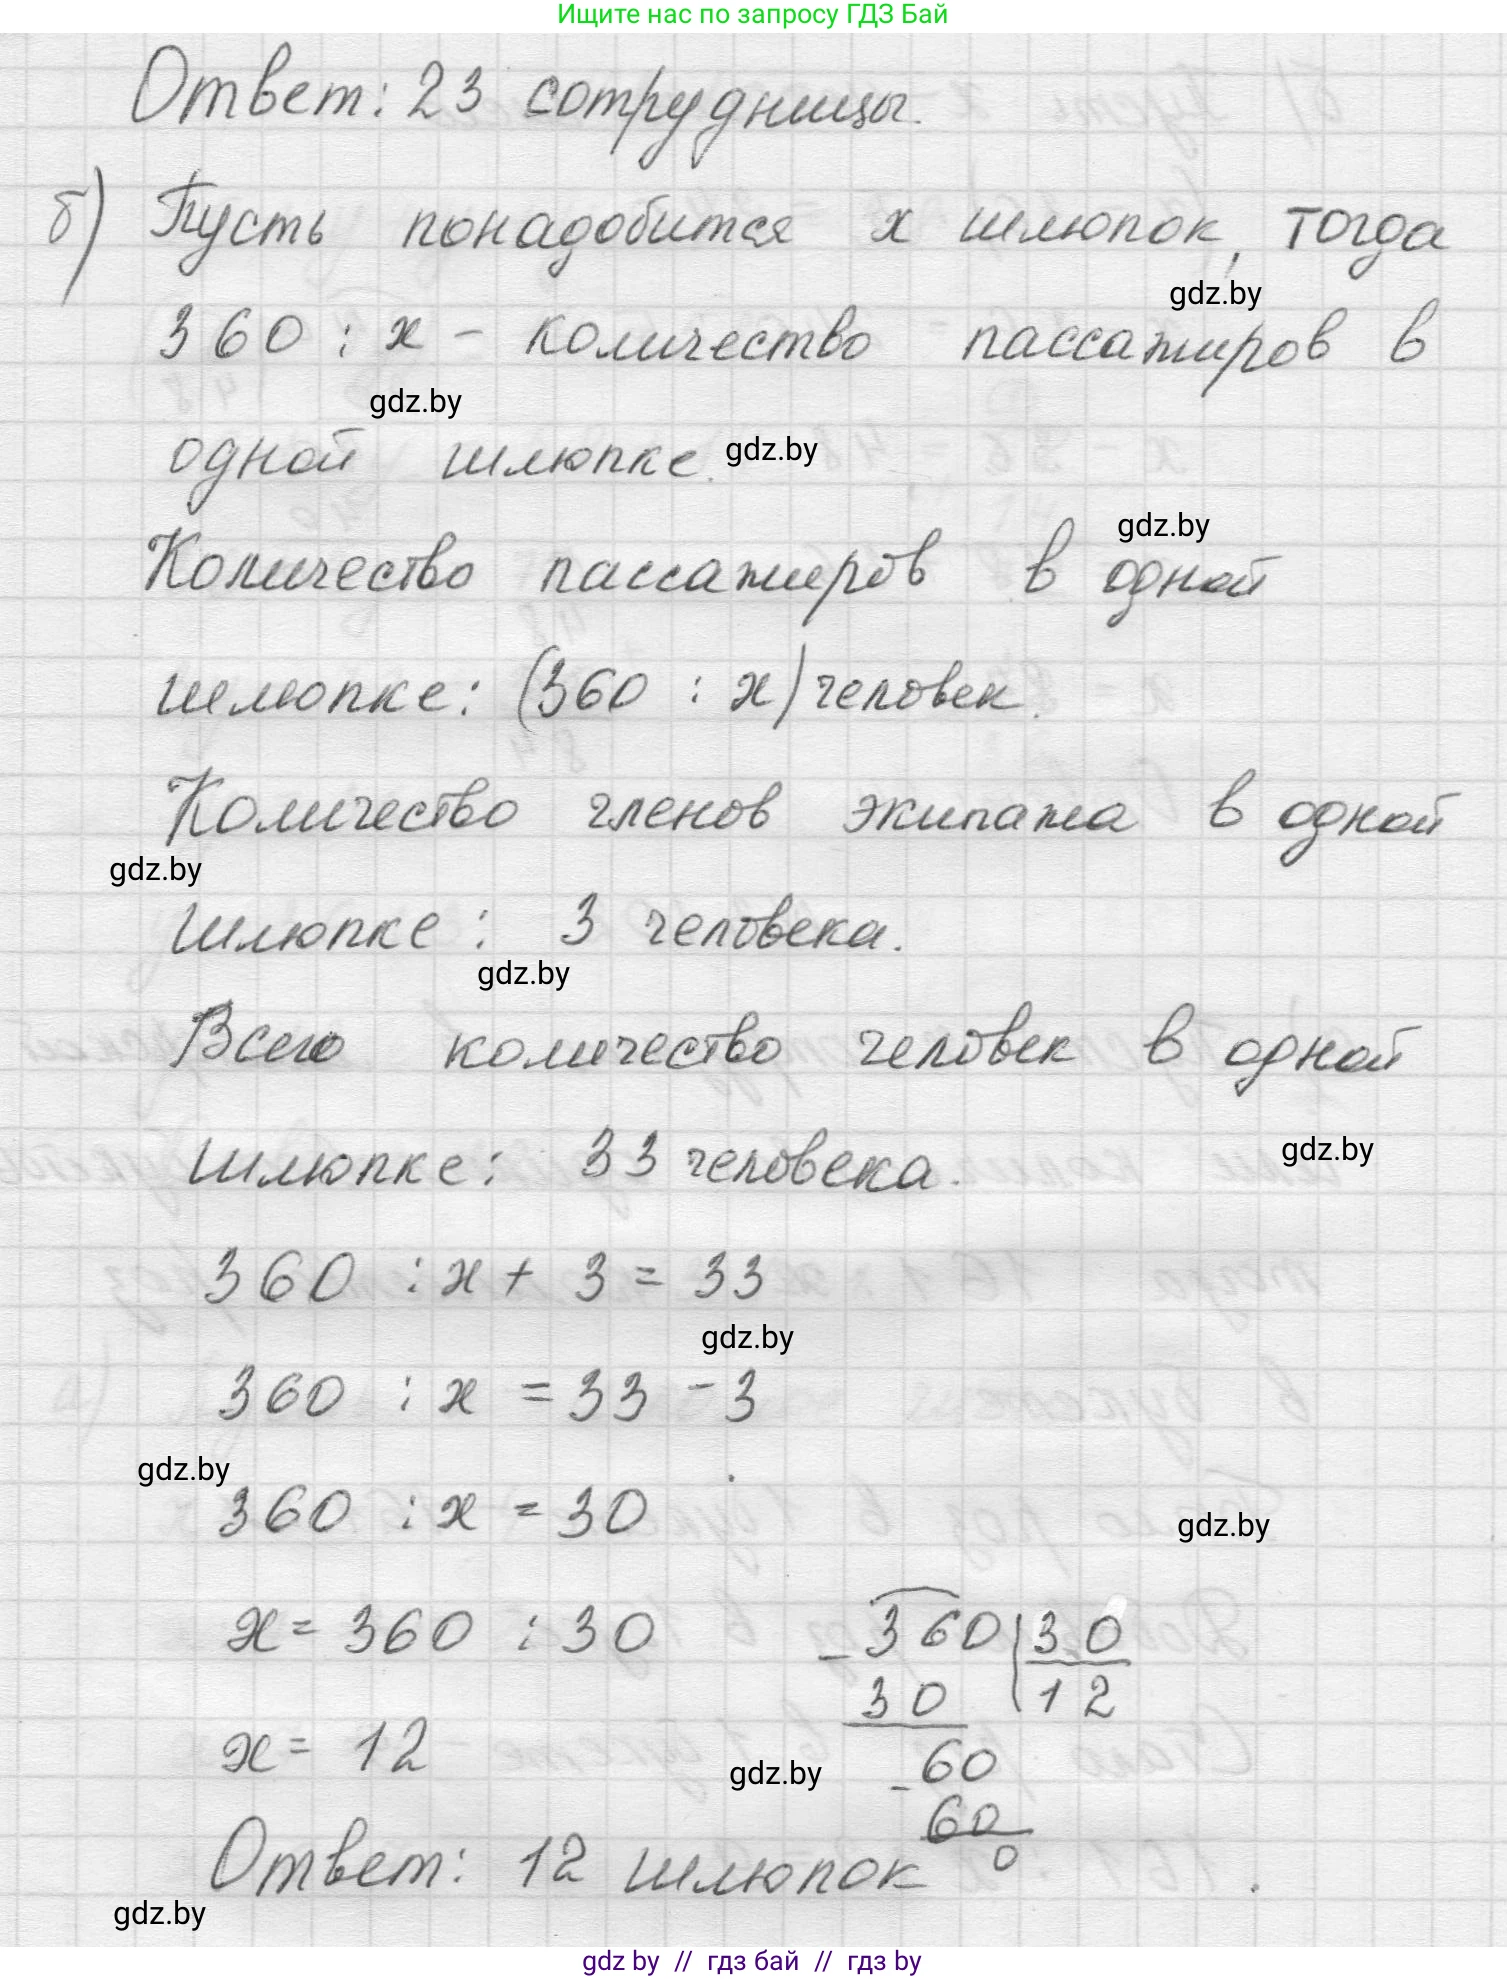 Ищите нас по запросу ГДЗ Бай
Ответ: 23 сотрудницы.
б) Пусть понадобится x шлюпок, тогда
gdz.by
360 : x - количество пассажиров в
gdz.by
одной шлюпке. gdz.by
gdz.by
Количество пассажиров в одной
шлюпке: (360 : x) человек.
Количество членов экипажа в одной
gdz.by
шлюпке: 3 человека.
gdz.by
Всего количество человек в одной
шлюпке: 33 человека.
gdz.by
360 : x + 3 = 33
gdz.by
360 : x = 33 - 3
gdz.by
360 : x = 30
gdz.by
x = 360 : 30
- 360 | 30
30 | 12
x = 12
- 60
gdz.by
60
0
Ответ: 12 шлюпок
gdz.by
gdz by // гдз бай // гдз by